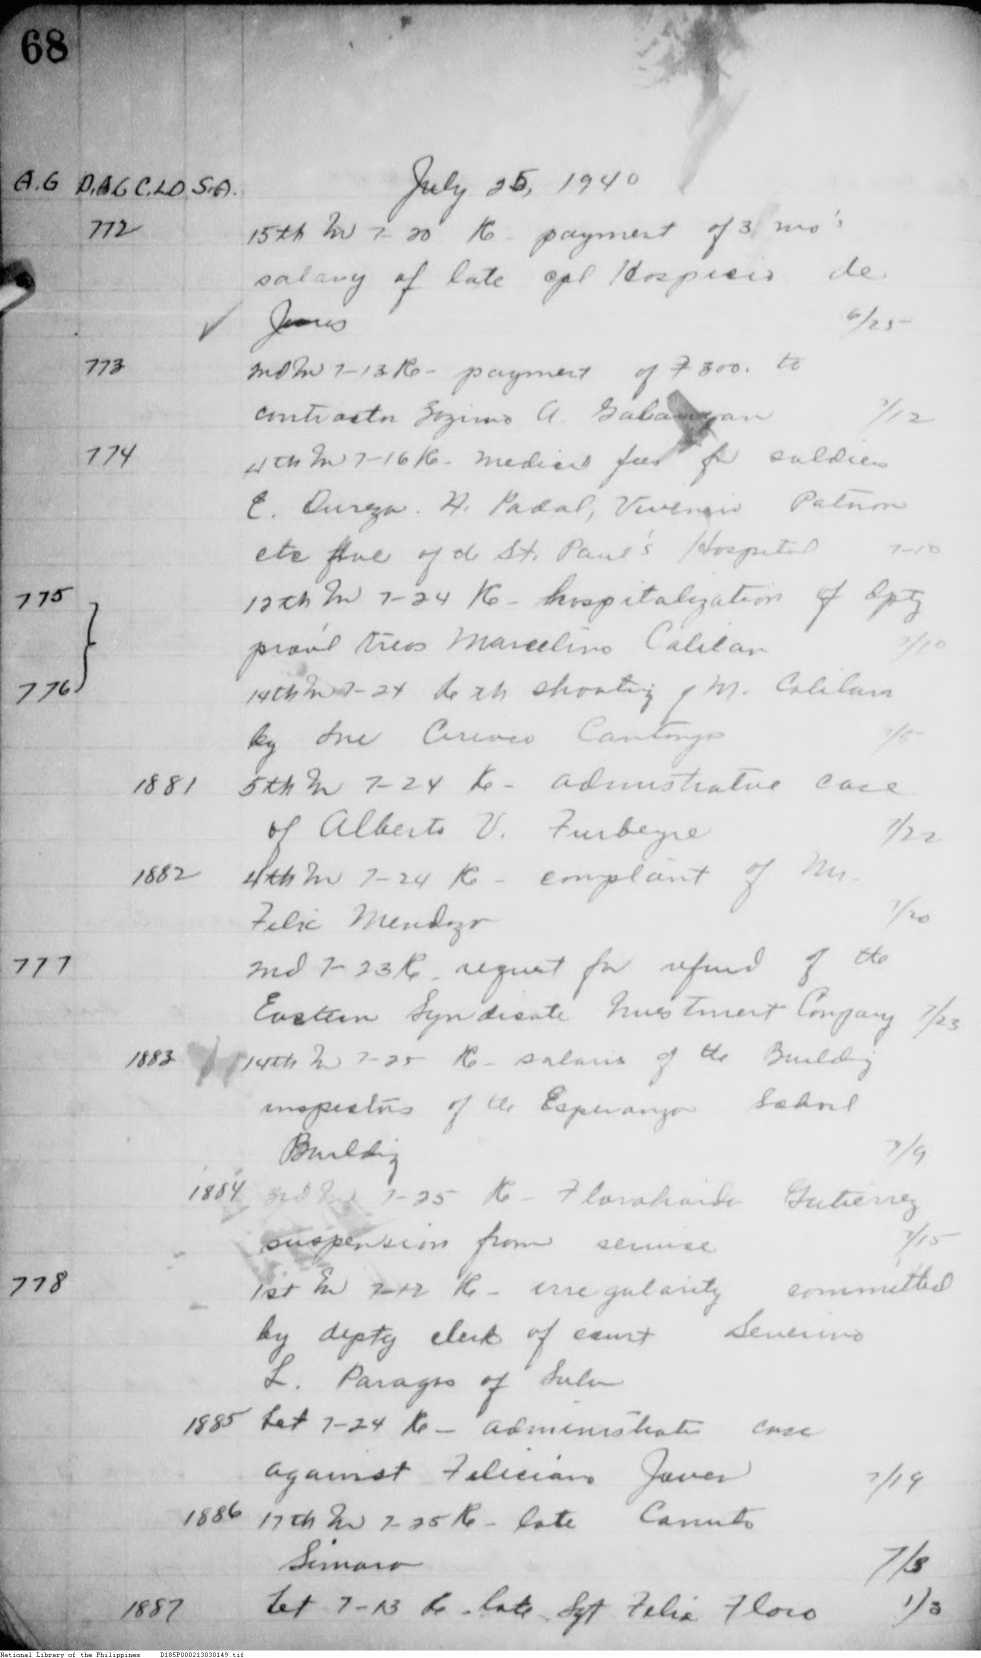 68
A.G D.A.G C.L.D. S.A. July 25, 1940
772 15th In 7-20 Re - payment of 3 mo's
salary of late cpl Hospicio de
Jesus 6/25
773 2nd In 7-13 Re - payment of ₱300. to
contractor Zozimo A. 7/12
774 4th In 7-16 Re - medical fees for soldiers
E. Dureza. H. Padal, Patron
etc five of d St. Paul's Hospital 7-10
775 12th In 7-24 Re - hospitalization of dpty
prov'l treas Marcelino Calilan 7/10
776 14th In 7-24 Re sh shooting of M. Calilan
by one Cantonga 7/5
1881 5th In 7-24 Re - administrative case
of Alberto V. Furbeyre 7/22
1882 4th In 7-24 Re - complaint of Mr.
Felix Mendoza 7/20
777 2nd 7-23 Re - request for refund of the
Eastern Syndicate Investment Company 7/23
1883 14th In 7-25 Re - salaries of the Building
inspectors of the Esperanza School
Building 7/9
1884 3rd Ind 7-25 Re - Gutierrez
suspension from service 7/15
778 1st In 7-12 Re - irregularity committed
by depty clerk of court Severino
L. Paragas of Sulu
1885 Let 7-24 Re - administrative case
against Feliciano Javer 7/19
1886 17th In 7-25 Re - late Canuto
Simaro 7/3
1887 Let 7-13 Re - late Sgt Felix Floro 1/3
National Library of the Philippines D185P000213030149.tif